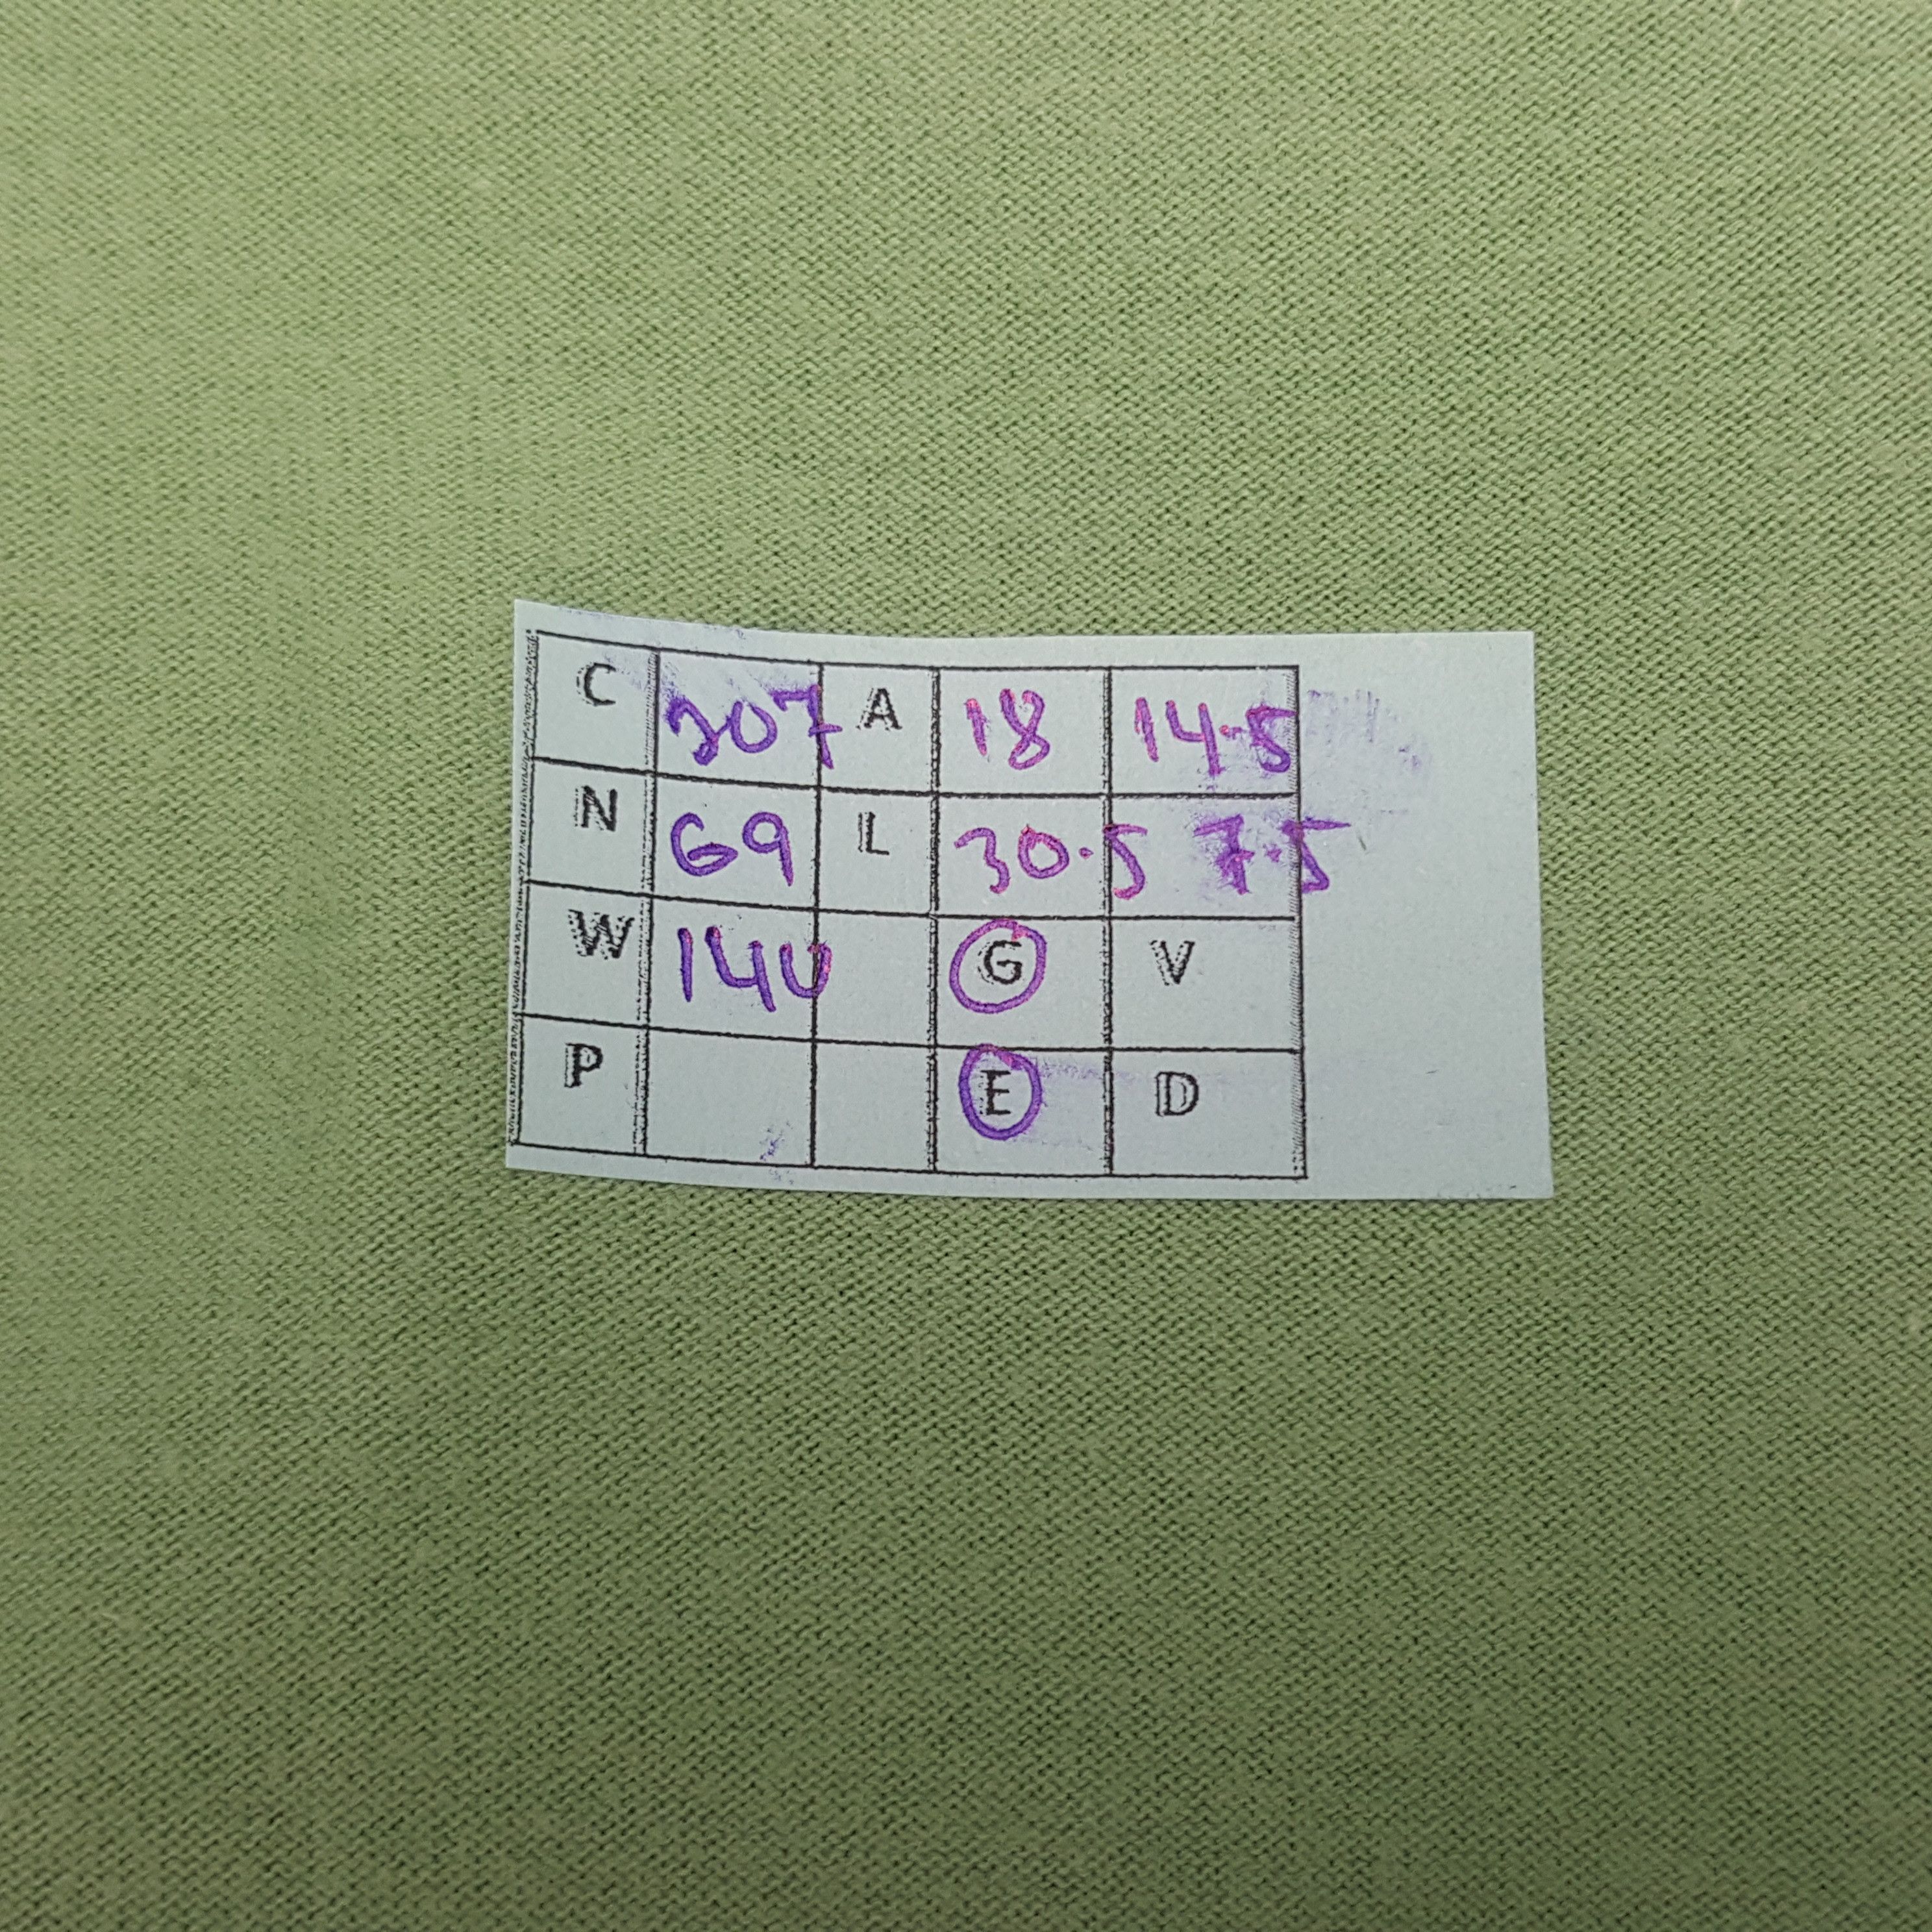 C 307 A 18 14.5
N 69 L 30.5 7.5
W 140 G V
P E D